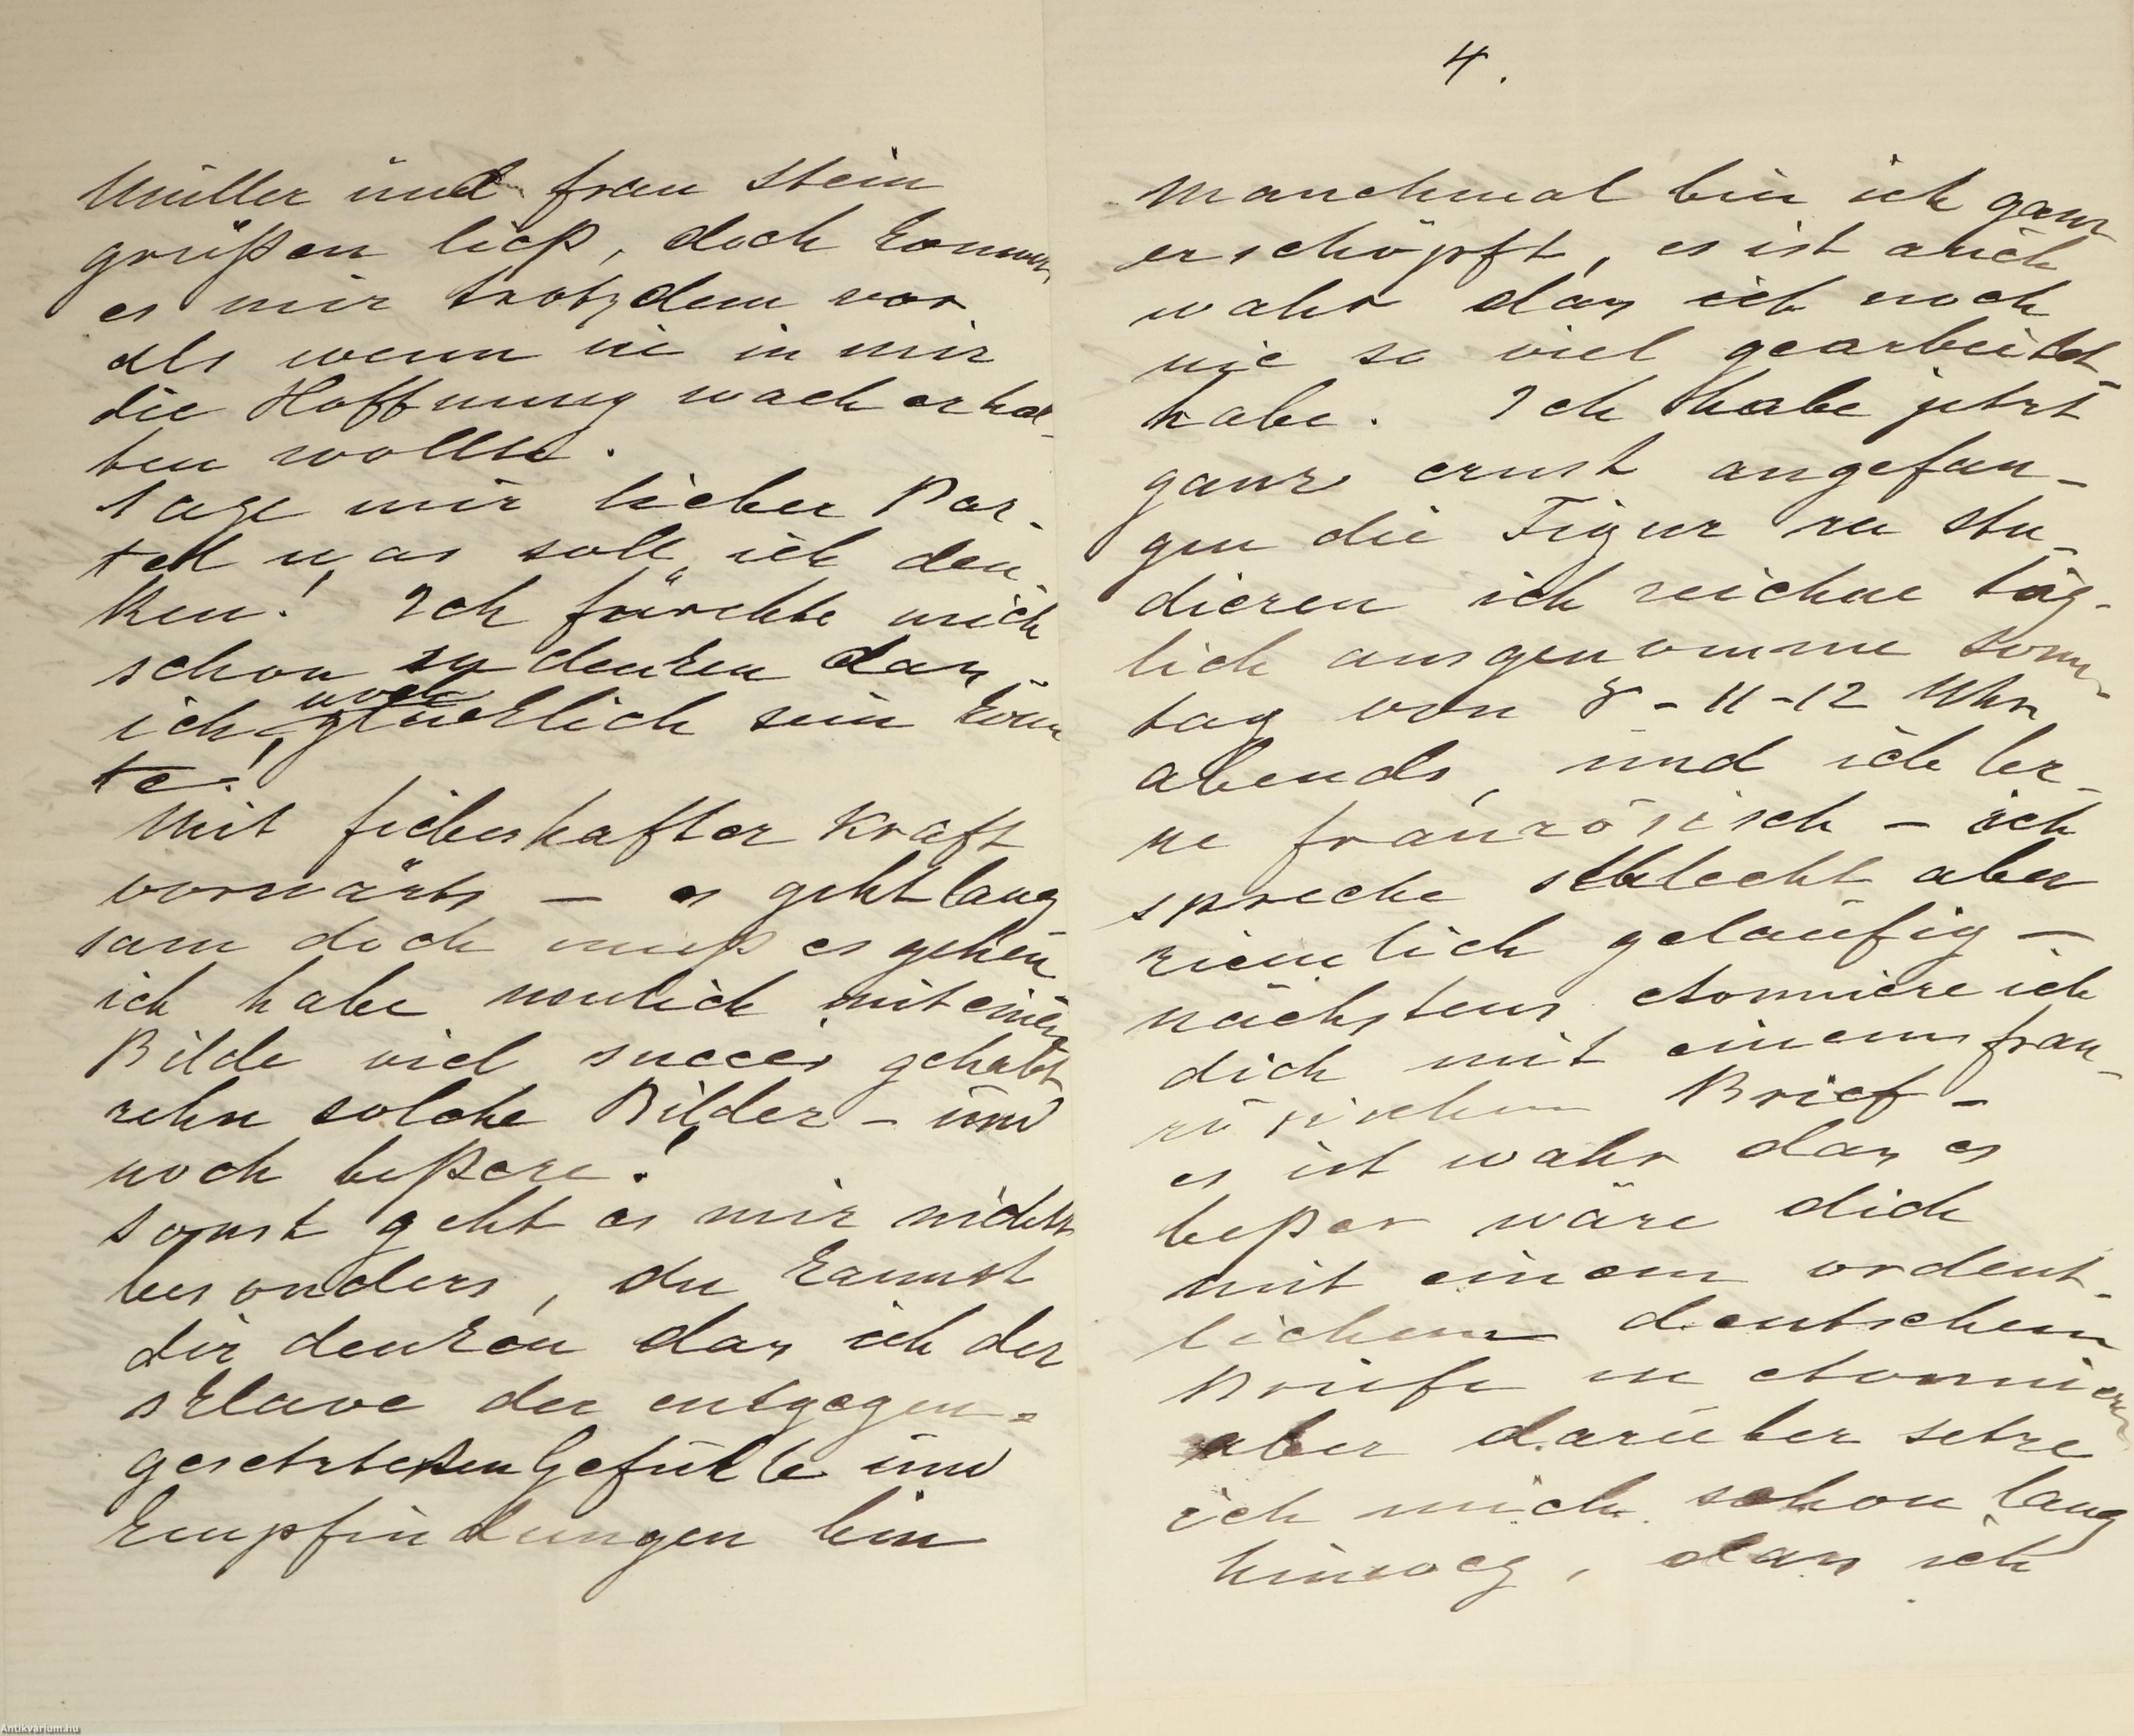 Müller und frau Stein
grüßen ließ, doch komm
es mir trotzdem vor
als wenn sie in mir
die Hoffnung wach erhal-
ten wollte.
Sage mir lieber Par-
tel was soll ich den-
ken! Ich fürchte mich
schon zu denken das
ich noch glücklich sein könn
te!
Mit fieberhafter Kraft
vorwärts – es geht lang
sam doch muß es gehen
ich habe neulich mit einem
Bilde viel succes gehabt
zehn solche Bilder – und
noch beßere!
Sonst geht es mir nichts
besonders, du kannst
dir denken das ich der
Sklave der entgegen-
gesetztesten Gefühle und
Empfindungen bin
4.
Manchmal bin ich ganz
erschöpft, es ist auch
wahr das ich noch
nie so viel gearbeitet
habe. Ich habe jetzt
ganz ernst angefan-
gen die Figur zu stu-
dieren ich zeichne täg-
lich ausgenomme Sonn-
tag von 8 - 11 - 12 Uhr
abends, und ich ler-
ne französisch – ich
spreche schlecht aber
ziemlich geläufig –
nächstens etonniere ich
dich mit einem fran-
zösischen Brief –
es ist wahr das es
beßer wäre dich
mit einem ordent-
lichem deutschem
Briefe zu etonnieren
aber darüber setze
ich mich schon lang
hinweg, das ich
Antikvarium.hu